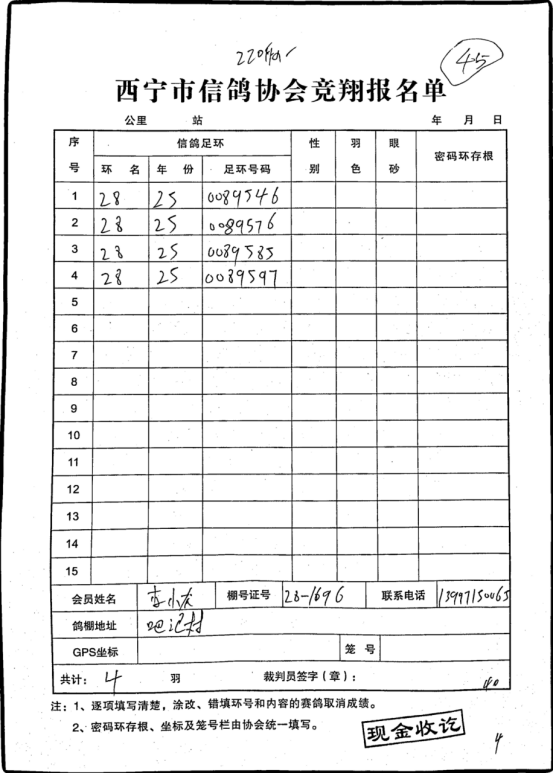 45
西宁市信鸽协会竞翔报名单
公里 站 年 月 日
序号 信鸽足环 性别 羽色 眼砂 密码环存根
环名 年份 足环号码
1 28 25 0089546
2 28 25 0089576
3 28 25 0089585
4 28 25 0089597
5
6
7
8
9
10
11
12
13
14
15
会员姓名 李小龙 棚号证号 28-1696 联系电话 13997150065
鸽棚地址 吧记村
GPS坐标 笼号
共计: 4 羽 裁判员签字(章): 40
注: 1、逐项填写清楚，涂改、错填环号和内容的赛鸽取消成绩。
2、密码环存根、坐标及笼号栏由协会统一填写。
现金收讫
4